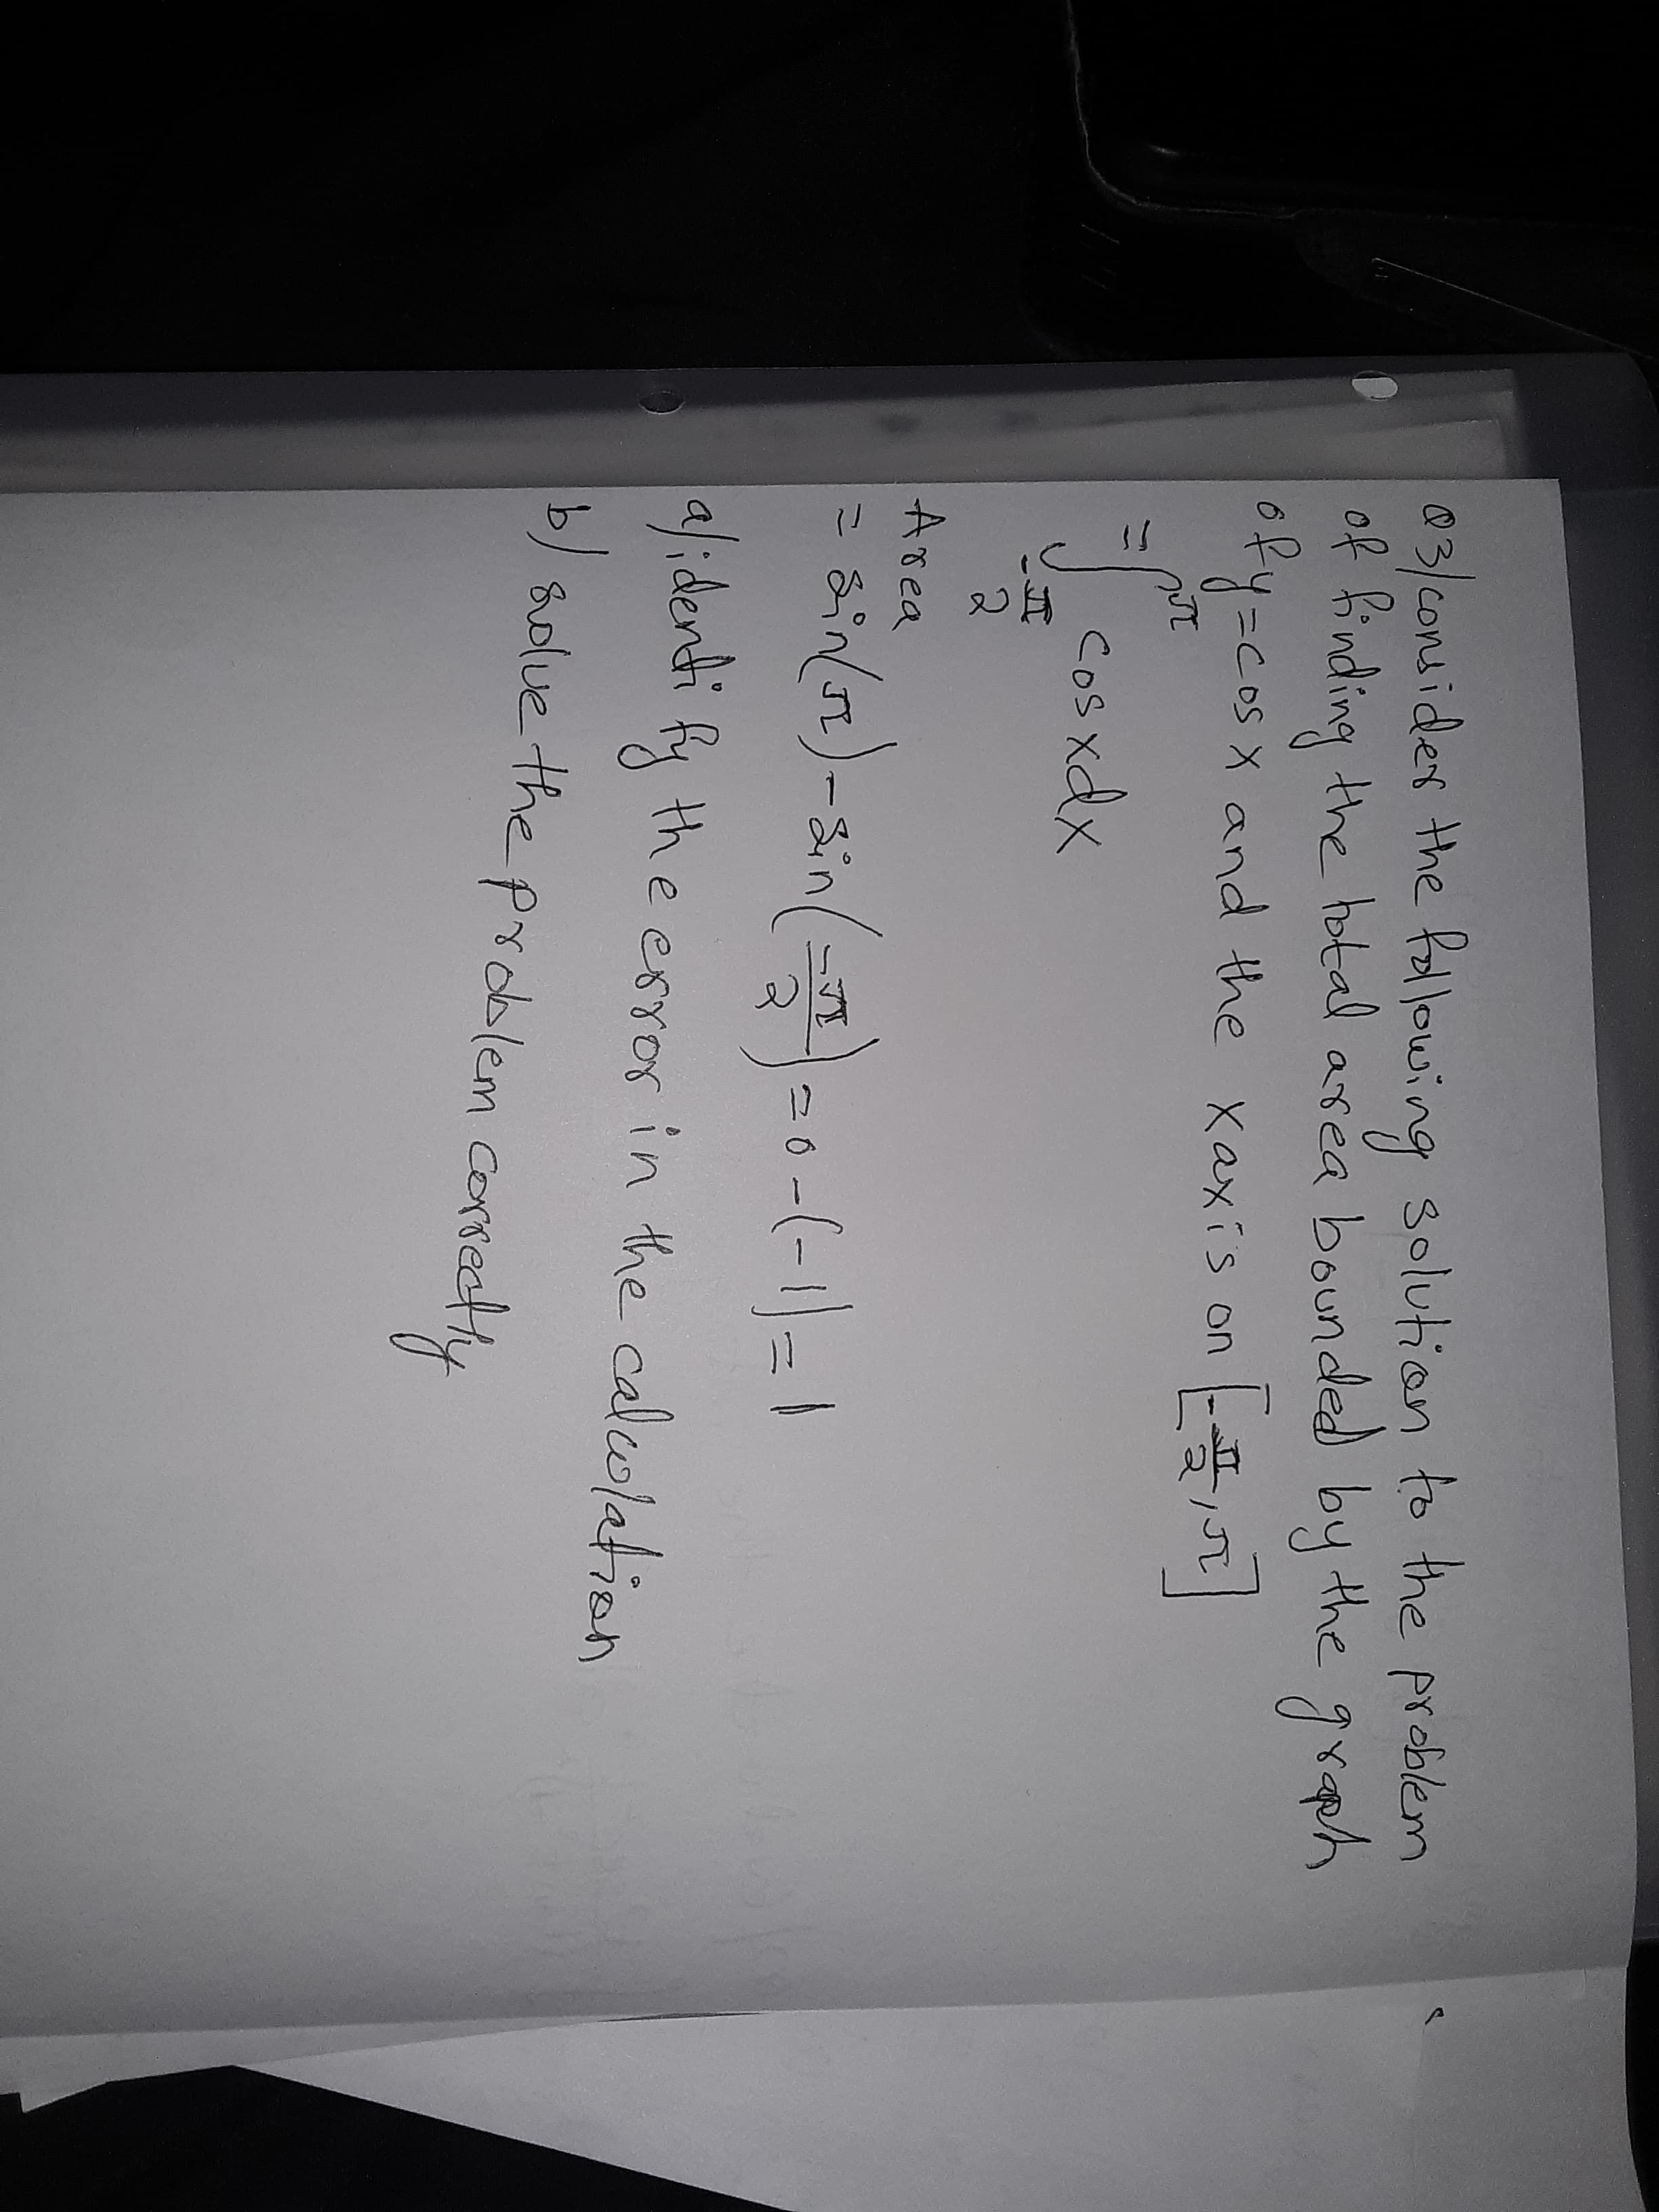 Q3/consider the following solution to the problem
of finding the total area bounded by the graph
of y=cos x and the xaxis on [-π/2, π]
= ∫_{-π/2}^{π} cos x dx
Area
= sin(π) - sin(-π/2) = 0 - (-1) = 1
a/identify the error in the calculation
b/ solve the problem correctly